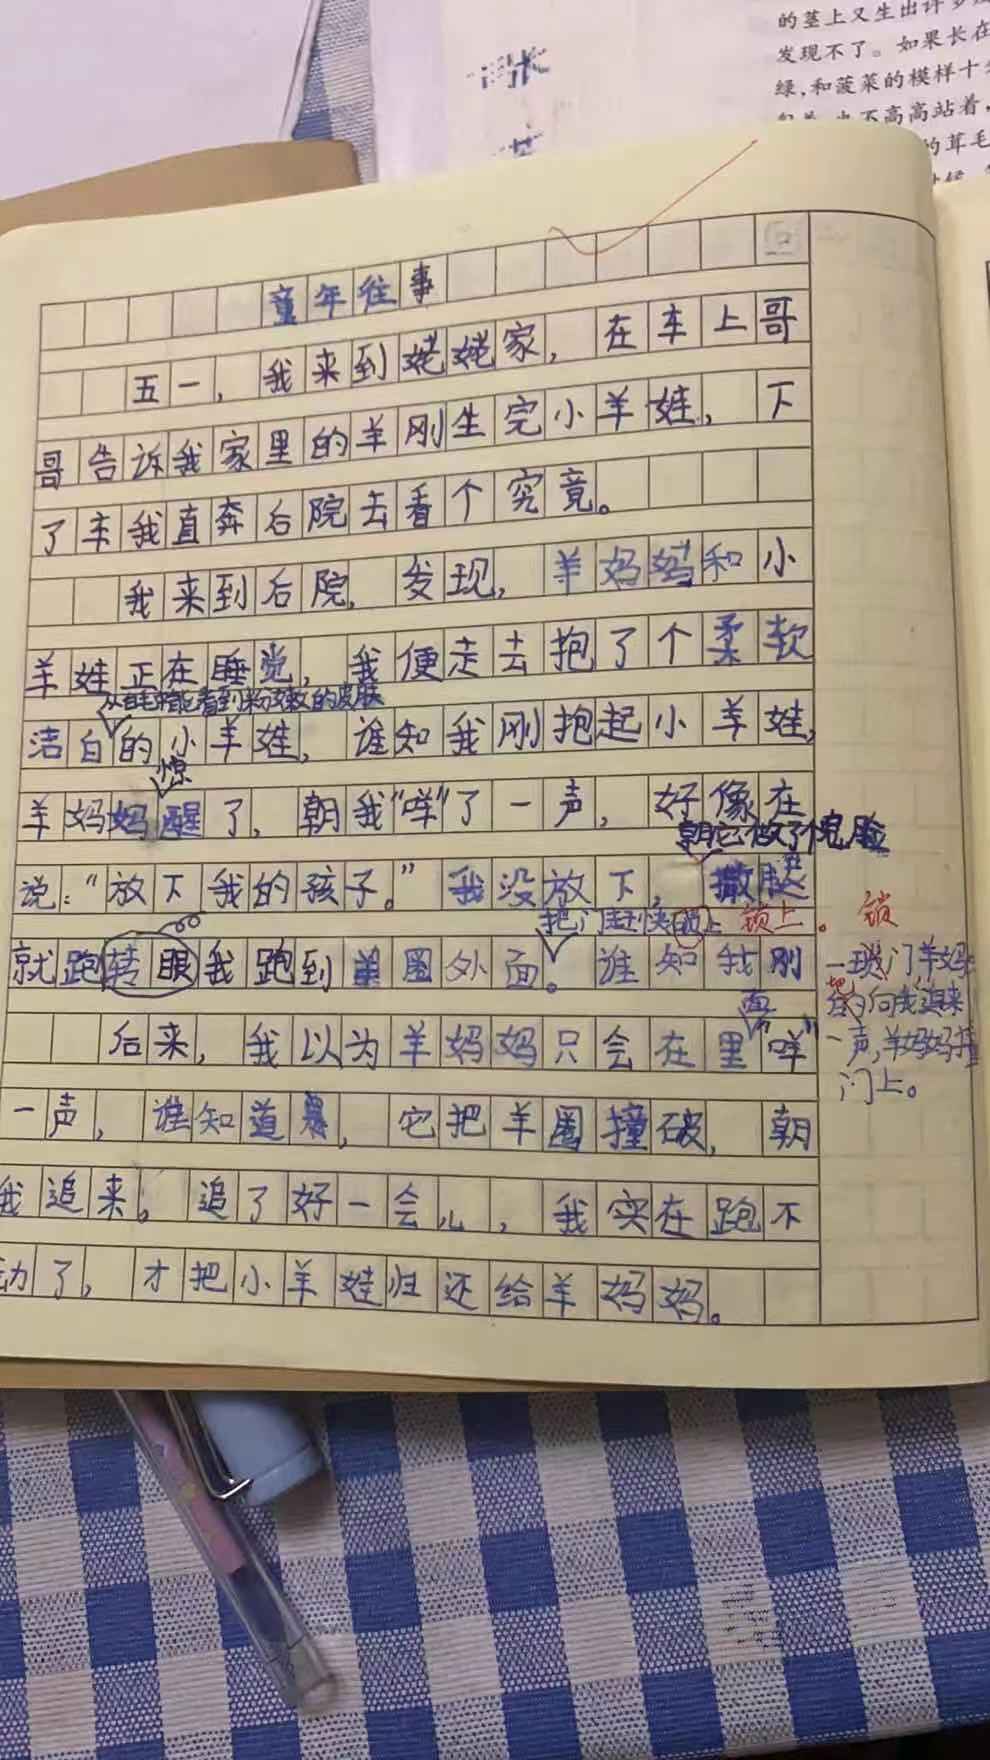 的茎上又生出许多
发现不了。如果长在
绿，和菠菜的模样十
也不高高站着，
的茸毛
童年往事
五一，我来到姥姥家，在车上哥
哥告诉我家里的羊刚生完小羊娃，下
了车我直奔后院去看个究竟。
我来到后院，发现，羊妈妈和小
羊娃正在睡觉，我便走去抱了个柔软
从白毛中能看到粉嫩的皮肤
洁白的小羊娃，谁知我刚抱起小羊娃，
惊
羊妈妈醒了，朝我“咩”了一声，好像在
朝它做了个鬼脸
说：“放下我的孩子。”我没放下，撒腿
把门赶快锁上 锁上。 锁
就跑转眼我跑到羊圈外面。谁知我刚
一锁门羊妈妈
把 向我追来
面
后来，我以为羊妈妈只会在里“咩”
一声，羊妈妈撞
门上。
一声，谁知道，它把羊圈撞破，朝
我追来。追了好一会儿，我实在跑不
动了，才把小羊娃归还给羊妈妈。